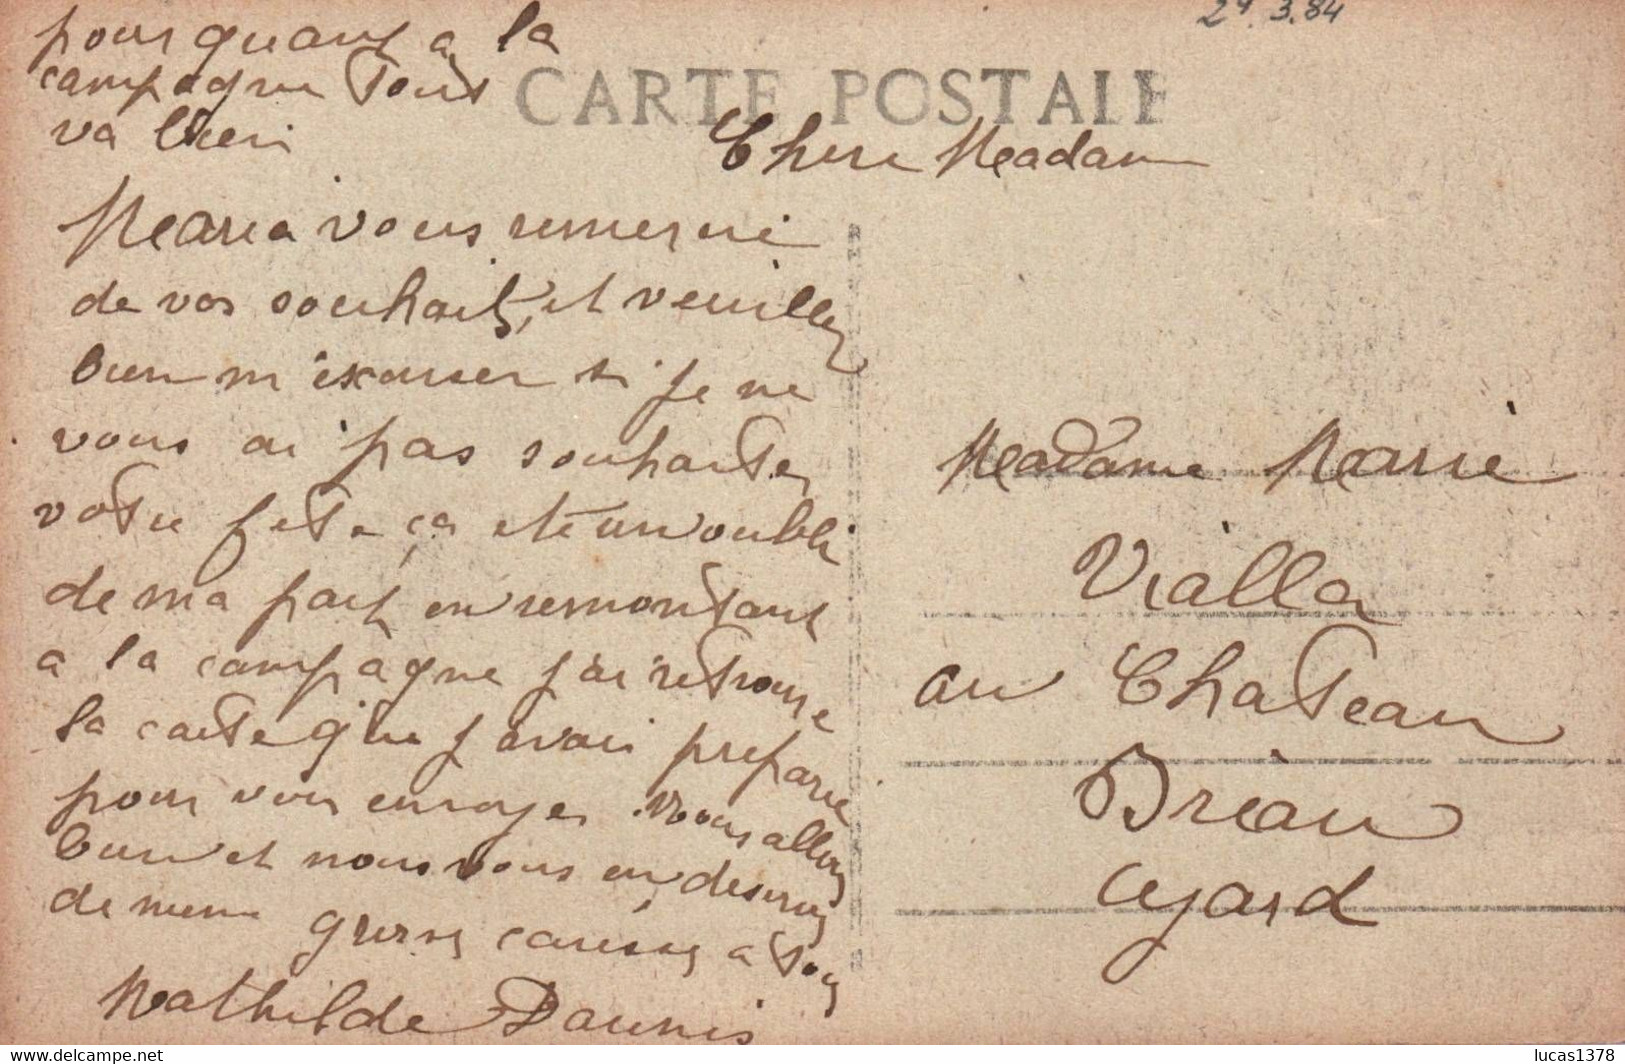 29.3.84
CARTE POSTALE
Chere Madame
Maria vous remerci
de vos souhaits, et veuillez
bien m'excuser si je ne
vous ai pas souhaiter
votre fete ça ete un oubli
de ma part en remontant
a la campagne j'ai retrouve
la carte que j'avais prepare
pour vous envoyer. Vous allez
bien et nous vous en desirons
de meme grosses caresses a tous
Mathilde Daunis
pour quant a la
campagne tous
va bien
Madame Marie
Vialla
au Chateau
Briau
Agard
delcampe.net
lucas1378